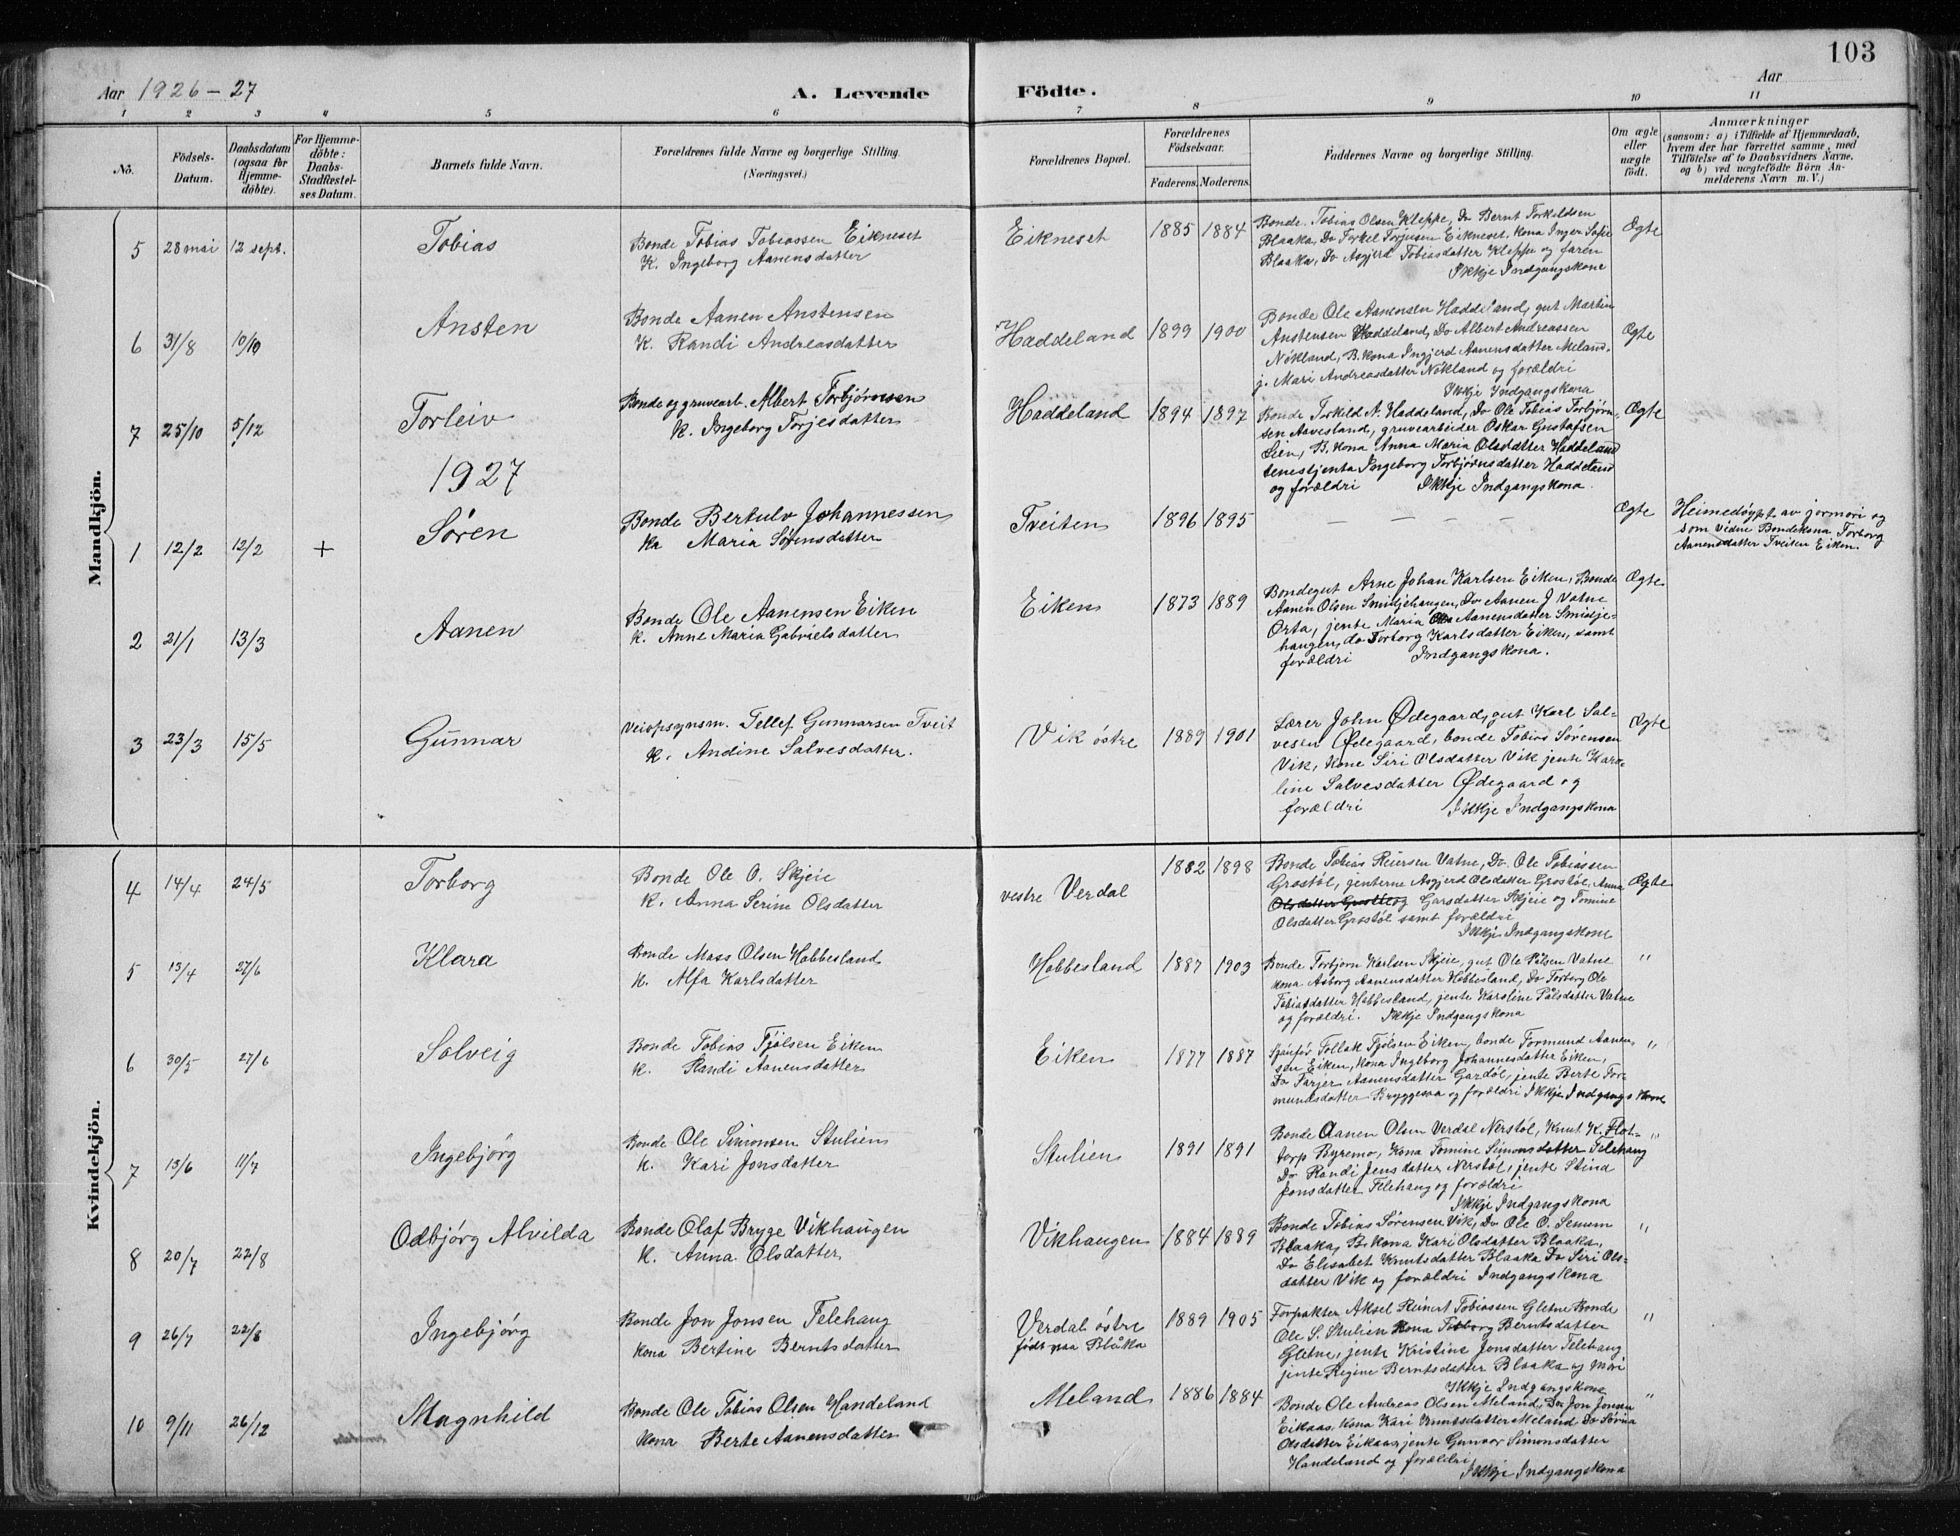 103
Aar 1926-27 A. Levende Födte. Aar
1 2 3 4 5 6 7 8 9 10 11
No.
Födsels-Datum.
Daabsdatum (ogsaa for Hjemmedöbte).
For Hjemmedöbte: Daabs-Stadfæstelses Datum.
Barnets fulde Navn.
Forældrenes fulde Navne og borgerlige Stilling.
(Næringsvei.)
Forældrenes Bopæl.
Forældrenes Födselsaar.
Faderens. Moderens.
Faddernes Navne og borgerlige Stilling.
Om ægte eller uægte födt.
Anmærkninger
(saasom: a) i Tilfælde af Hjemmedaab, hvem der har forrettet samme, med Tilföielse af to Daabsvidners Navne, og b) ved uægtefödte Börn Anmelderens Navn m. V.)
Mandkjön.
5 28 mai 12 sept. Tobias
Bonde Tobias Tobiassen Eikneset
K. Ingeborg Aanensdatter
Eikneset 1885 1884
Bonde Tobias Olsen Kleppe, Do Bernt Torkildsen
Blaaka, Do Torkel Torjusen Eikneset, kona Inger Sofie
Blaaka, Do Asgjerd Tobiasdatter Kleppe og faren
Ikkje Indgangskone
Ægte
6 31/8 10/10 Ansten
Bonde Aanen Anstensen
K. Randi Andreasdatter
Haddeland 1899 1900
Bonde Ole Aanensen Haddeland, gut Martin
Anstensen Haddeland, Do Albert Andreassen
Nökland, B.kona Ingjerd Aanensdatter Meland,
j. Mari Andreasdatter Nökland og forældri
Ikkje Indgangskona
Ægte
7 25/10 5/12 Torleiv
Bonde og gruvearb. Albert Torbjørnsen
K. Ingeborg Torjesdatter
Haddeland 1894 1897
Bonde Torkild A. Haddeland, Do Ole Tobias Torbjørn-
sen Aavesland, gruvearbeider Oskar Gustafsen
Lien, B.kona Anna Maria Olsdatter Haddeland
tenestjenta Ingeborg Torbjørnsdatter Haddeland
og forældri Ikkje Indgangskona.
Ægte
1927
1 12/2 12/2 + Søren
Bonde Bertulv Johannessen
Ka Maria Sørensdatter
Tveiten 1896 1895
— — — —
Ægte
Heimedøypt av jormori og
som vidne Bondekona Torborg
Aanensdatter Tveiten Eiken.
2 21/1 13/3 Aanen
Bonde Ole Aanensen Eiken
K. Anne Maria Gabrielsdatter
Eiken 1873 1889
Bondegut Arne Johan Karlsen Eiken, Bonde
Aanen Olsen Smidjehaugen, Do Aanen J Vatne
Orta, jente Maria Aanensdatter Smidje-
haugen, do Torborg Karlsdatter Eiken, samt
forældri Indgangskona.
Ægte
3 23/3 15/5 Gunnar
Veiopsynsm. Tellef Gunnarsen Tveit
K. Andine Salvesdatter.
Vik østre 1889 1901
Lærer John Ødegaard, gut Karl Sal-
vesen Ødegaard, bonde Tobias Sørensen
Vik, kone Siri Olsdatter Vik jente Karo-
line Salvesdatter Ødegaard og
forældri Ikkje Indgangskona
Ægte
Kvindekjön.
4 14/4 24/5 Torborg
Bonde Ole O. Skjeie
K. Anna Serine Olsdatter
vestre Verdal 1882 1898
Bonde Tobias Reiersen Vatne, Do Ole Tobiassen
Grostøl, jenterne Asgjerd Olsdatter Grostøl, Anna
Olsdatter Grostøl og Garsdatter Skjeie og Tomine
Olsdatter Grostøl samt forældri
Ikkje Indgangskone
Ægte
5 13/4 27/6 Klara
Bonde Mass Olsen Hobbesland
K. Alfa Karlsdatter
Hobbesland 1887 1903
Bonde Torbjorn Karlsen Skjeie, gut Ole Pålsen Vatne
kona Asborg Aanensdatter Hobbesland, Do Torborg Ole
Tobiasdatter Hobbesland, jente Karoline Pålsdatter Vatne
og forældri. Ikkje Indgangskona
"
6 30/5 27/6 Solveig
Bonde Tobias Tjølsen Eiken
K. Randi Aanensdatter
Eiken 1877 1887
Sjåfør Tollak Tjølsen Eiken, bonde Tormund Aanen-
sen Eiken, kona Ingeborg Johannesdatter Eiken,
Do Tarjer Aanensdatter Gardøl, jente Berte Tor-
mundsdatter Bryggesaa og forældri Ikkje Indgangskone
"
7 13/6 11/7 Ingebjørg
Bonde Ole Simonsen Stulien
K. Kari Jonsdatter
Stulien 1891 1891
Bonde Aanen Olsen Verdal Nerstøl, Knut K. Flot-
torp Byremo, kona Tomine Simonsdatter Telehaug
Do Randi Jensdatter Nerstøl, jente Stina
Jonsdatter Telehaug og forældri
Ikkje Indgangskona
"
8 20/7 22/8 Odbjörg Alvilda
Bonde Olaf Bryge Vikhaugen
K. Anna Olsdatter
Vikhaugen 1884 1889
Bonde Tobias Sørensen Vik, Do Ole O. Semum
Blaaka, B.kona Kari Olsdatter Blaaka,
Do Elisabet Knutsdatter Blaaka Do Siri Ols-
datter Vik og forældri Indgangskona
"
9 26/7 22/8 Ingebjørg
Bonde Jon Jonsen Telehaug
kona Bertine Berntsdatter
Verdal østre
født paa Blåka 1889 1905
Forpakter Aksel Reinert Tobiassen Gletne Bonde
Ole S. Stulien Kona Torborg Berntsdatter
Gletne, jente Kristine Jonsdatter Telehaug
jente Regine Berntsdatter Blaaka og Mori
Ikkje Indgangskone
"
10 9/11 26/12 Magnhild
Bonde Ole Tobias Olsen Handeland
kona Berte Aanensdatter
Meland 1886 1884
Bonde Ole Andreas Olsen Meland, Do Jon Jonsen
Eikaas, kona Kari Knutsdatter Meland Do Sørna
Olsdatter Eikaas, jente Gunvor Simonsdatter
Handeland og forældri
Ikkje Indgangskona
"